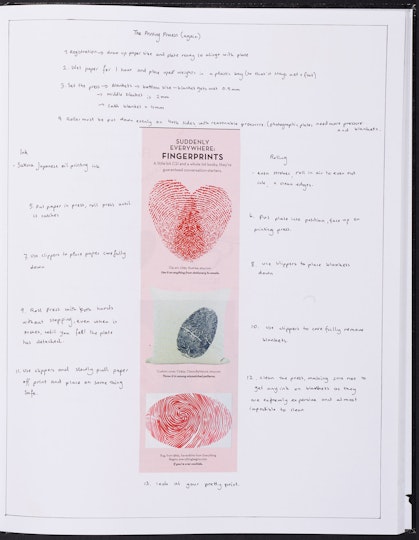 The Printing Process (again)
1. Registration → draw up paper size and plate ready to align with plate
2. Wet paper for 1 hour and place under weights in a plastic bag (so this it stays wet + flat)
3. Set the press → blankets is bottom size - blanket gets over 0.5mm
→ middle blanket is 2mm
→ last blanket = 5mm
4. Rollers must be put down evenly on both sides with reasonable pressure (photographic plates need more pressure
and blankets
Ink
- Sakura Japanese oil printing ink
5. Put paper in press, roll press until
it catches
7. Use slippers to place paper carefully
down
9. Roll press with both hands
without stopping, even when it
, until you feel the plate
has detached.
11. Use slippers and slowly pull paper
off print and place on something
safe
SUDDENLY
EVERYWHERE:
FINGERPRINTS
guaranteed conversation starters.
Rolling
- even strokes roll in air to even out
ink, + clean edges.
6. Put plate into position, face up on
printing press
8. use slippers to place blankets
down
10. Use slippers to carefully remove
blankets
12. Clean the press, making sure not to
get any ink on blankets as they
are extremely expensive and almost
impossible to clean
13. look at your pretty print.